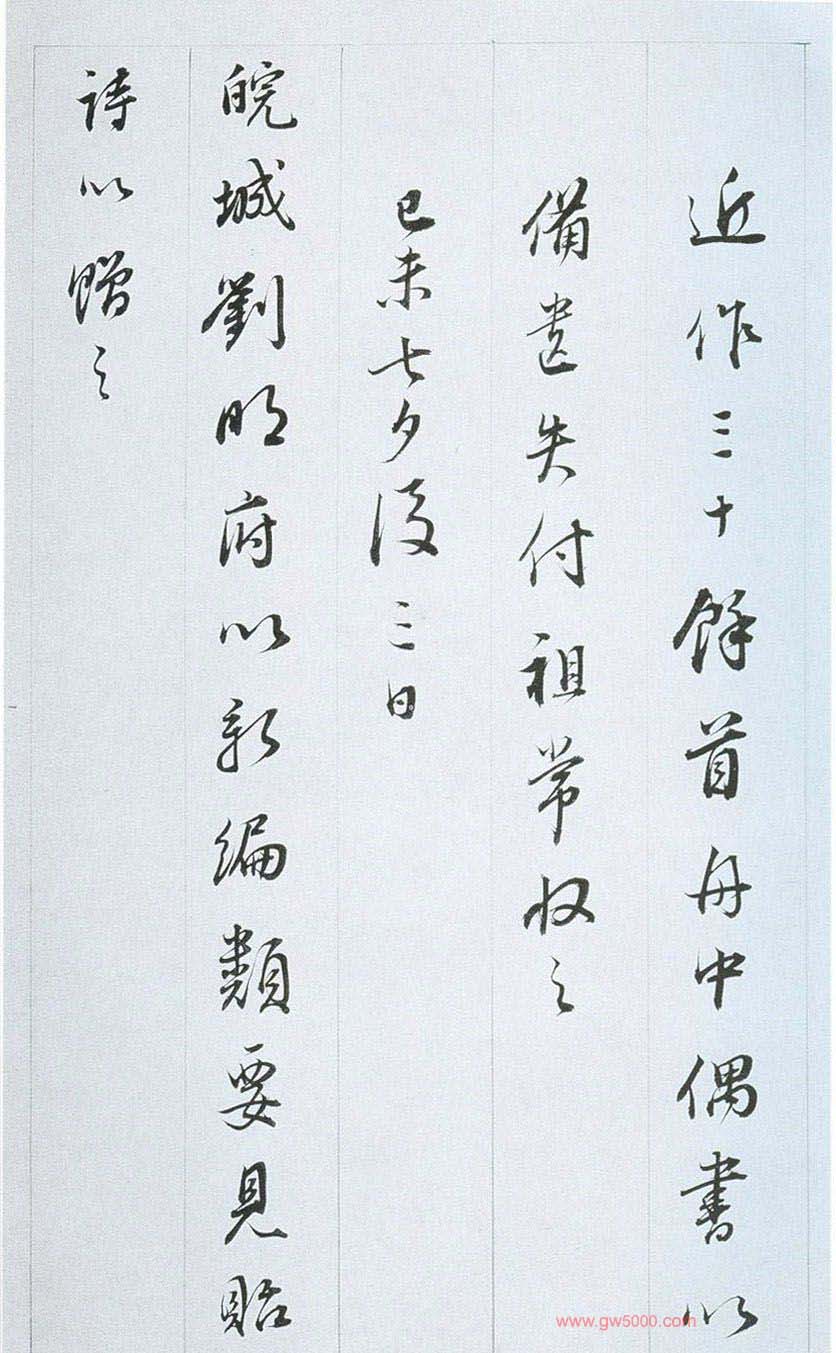 近作三十餘首舟中偶書以
備遺失付祖常收之
己未七夕後三日
皖城劉明府以新編類要見貽
詩以贈之
www.gw5000.com